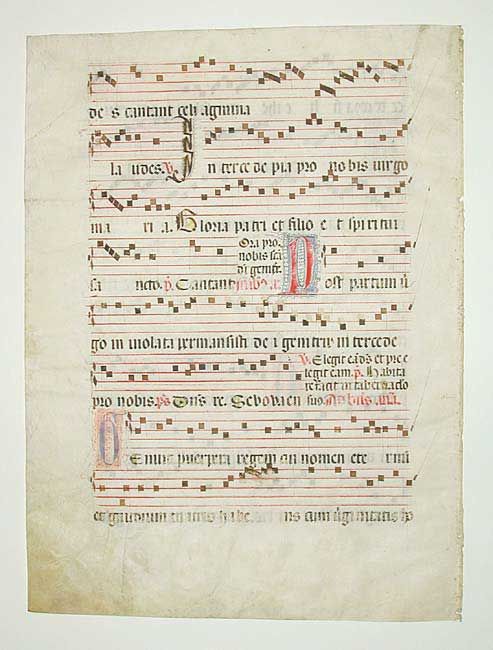 des cantant celi agmina
laudes. V. In tercede pia pro nobis virgo
maria. Gloria patri et filio et spiritui
Ora pro
nobis scā
dī genitr.
sancto. p. Cantant Post partum ū
go inviolata permansisti dei genitrix intercede
V. Elegit eā ds et pre
legit eam. p. Habita
re facit in tabernaclo
pro nobis. ps Dns re. Sevovaen suo.
Genuit puerpera regem cui nomen eter
et gaudium matris habens cum v̄ginitatis